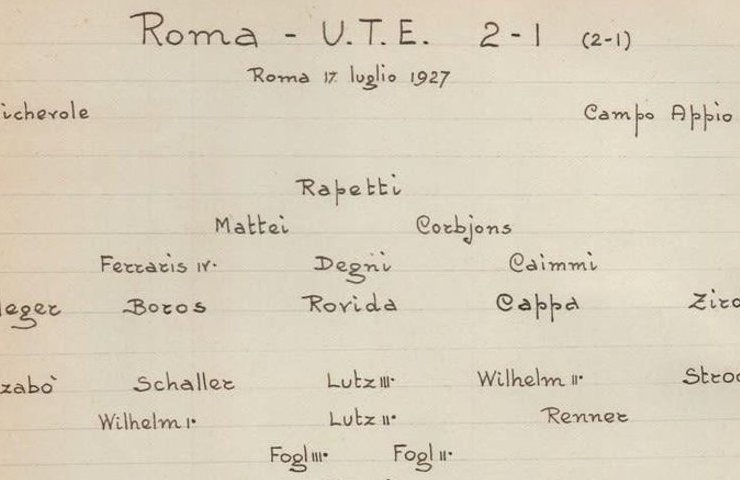 Roma - U.T.E. 2-1 (2-1)
Roma 17 luglio 1927
icherole Campo Appio
Rapetti
Mattei Corbjons
Ferraris IV. Degni Caimmi
leger Boros Rovida Cappa Ziro
zabò Schaller Lutz III. Wilhelm II. Stroc
Wilhelm I. Lutz II. Renner
Fogl III. Fogl II.